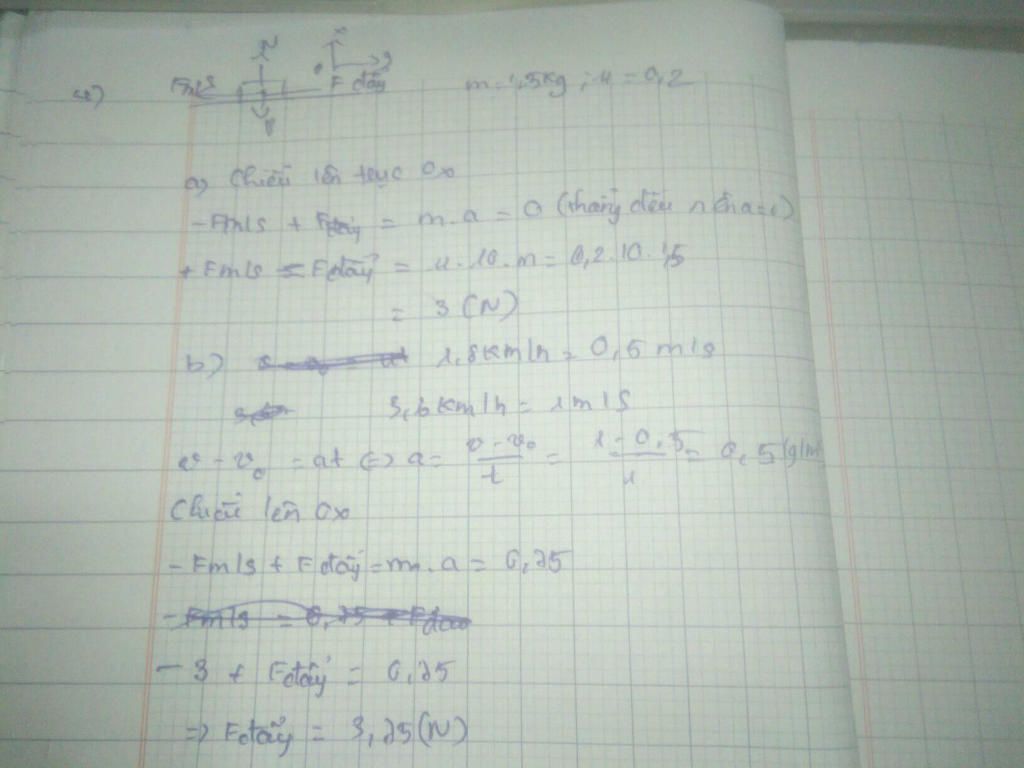 N
Fmls F đẩy m = 1,5kg ; u = 0,2
P
a) Chiếu lên trục Ox
- Fmls + Fđẩy = m.a = 0 (thẳng đều nên a=0)
+ Fmls = Fđẩy = u.10.m = 0,2.10.1,5
= 3 (N)
b) 1,8km/h = 0,5 m/s
3,6km/h = 1m/s
v - v₀ = at (=) a = v - v₀ / t = 1 - 0,5 / 1 = 0,5
Chiếu lên Ox
- Fmls + Fđẩy = m.a = 0,75
- 3 + Fđẩy = 0,75
=> Fđẩy = 3,75 (N)